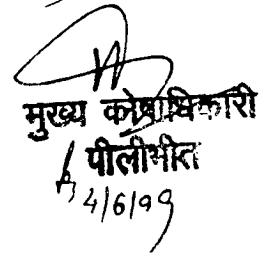 मुख्य कोषाधिकारी
पीलीभीत
4/6/99